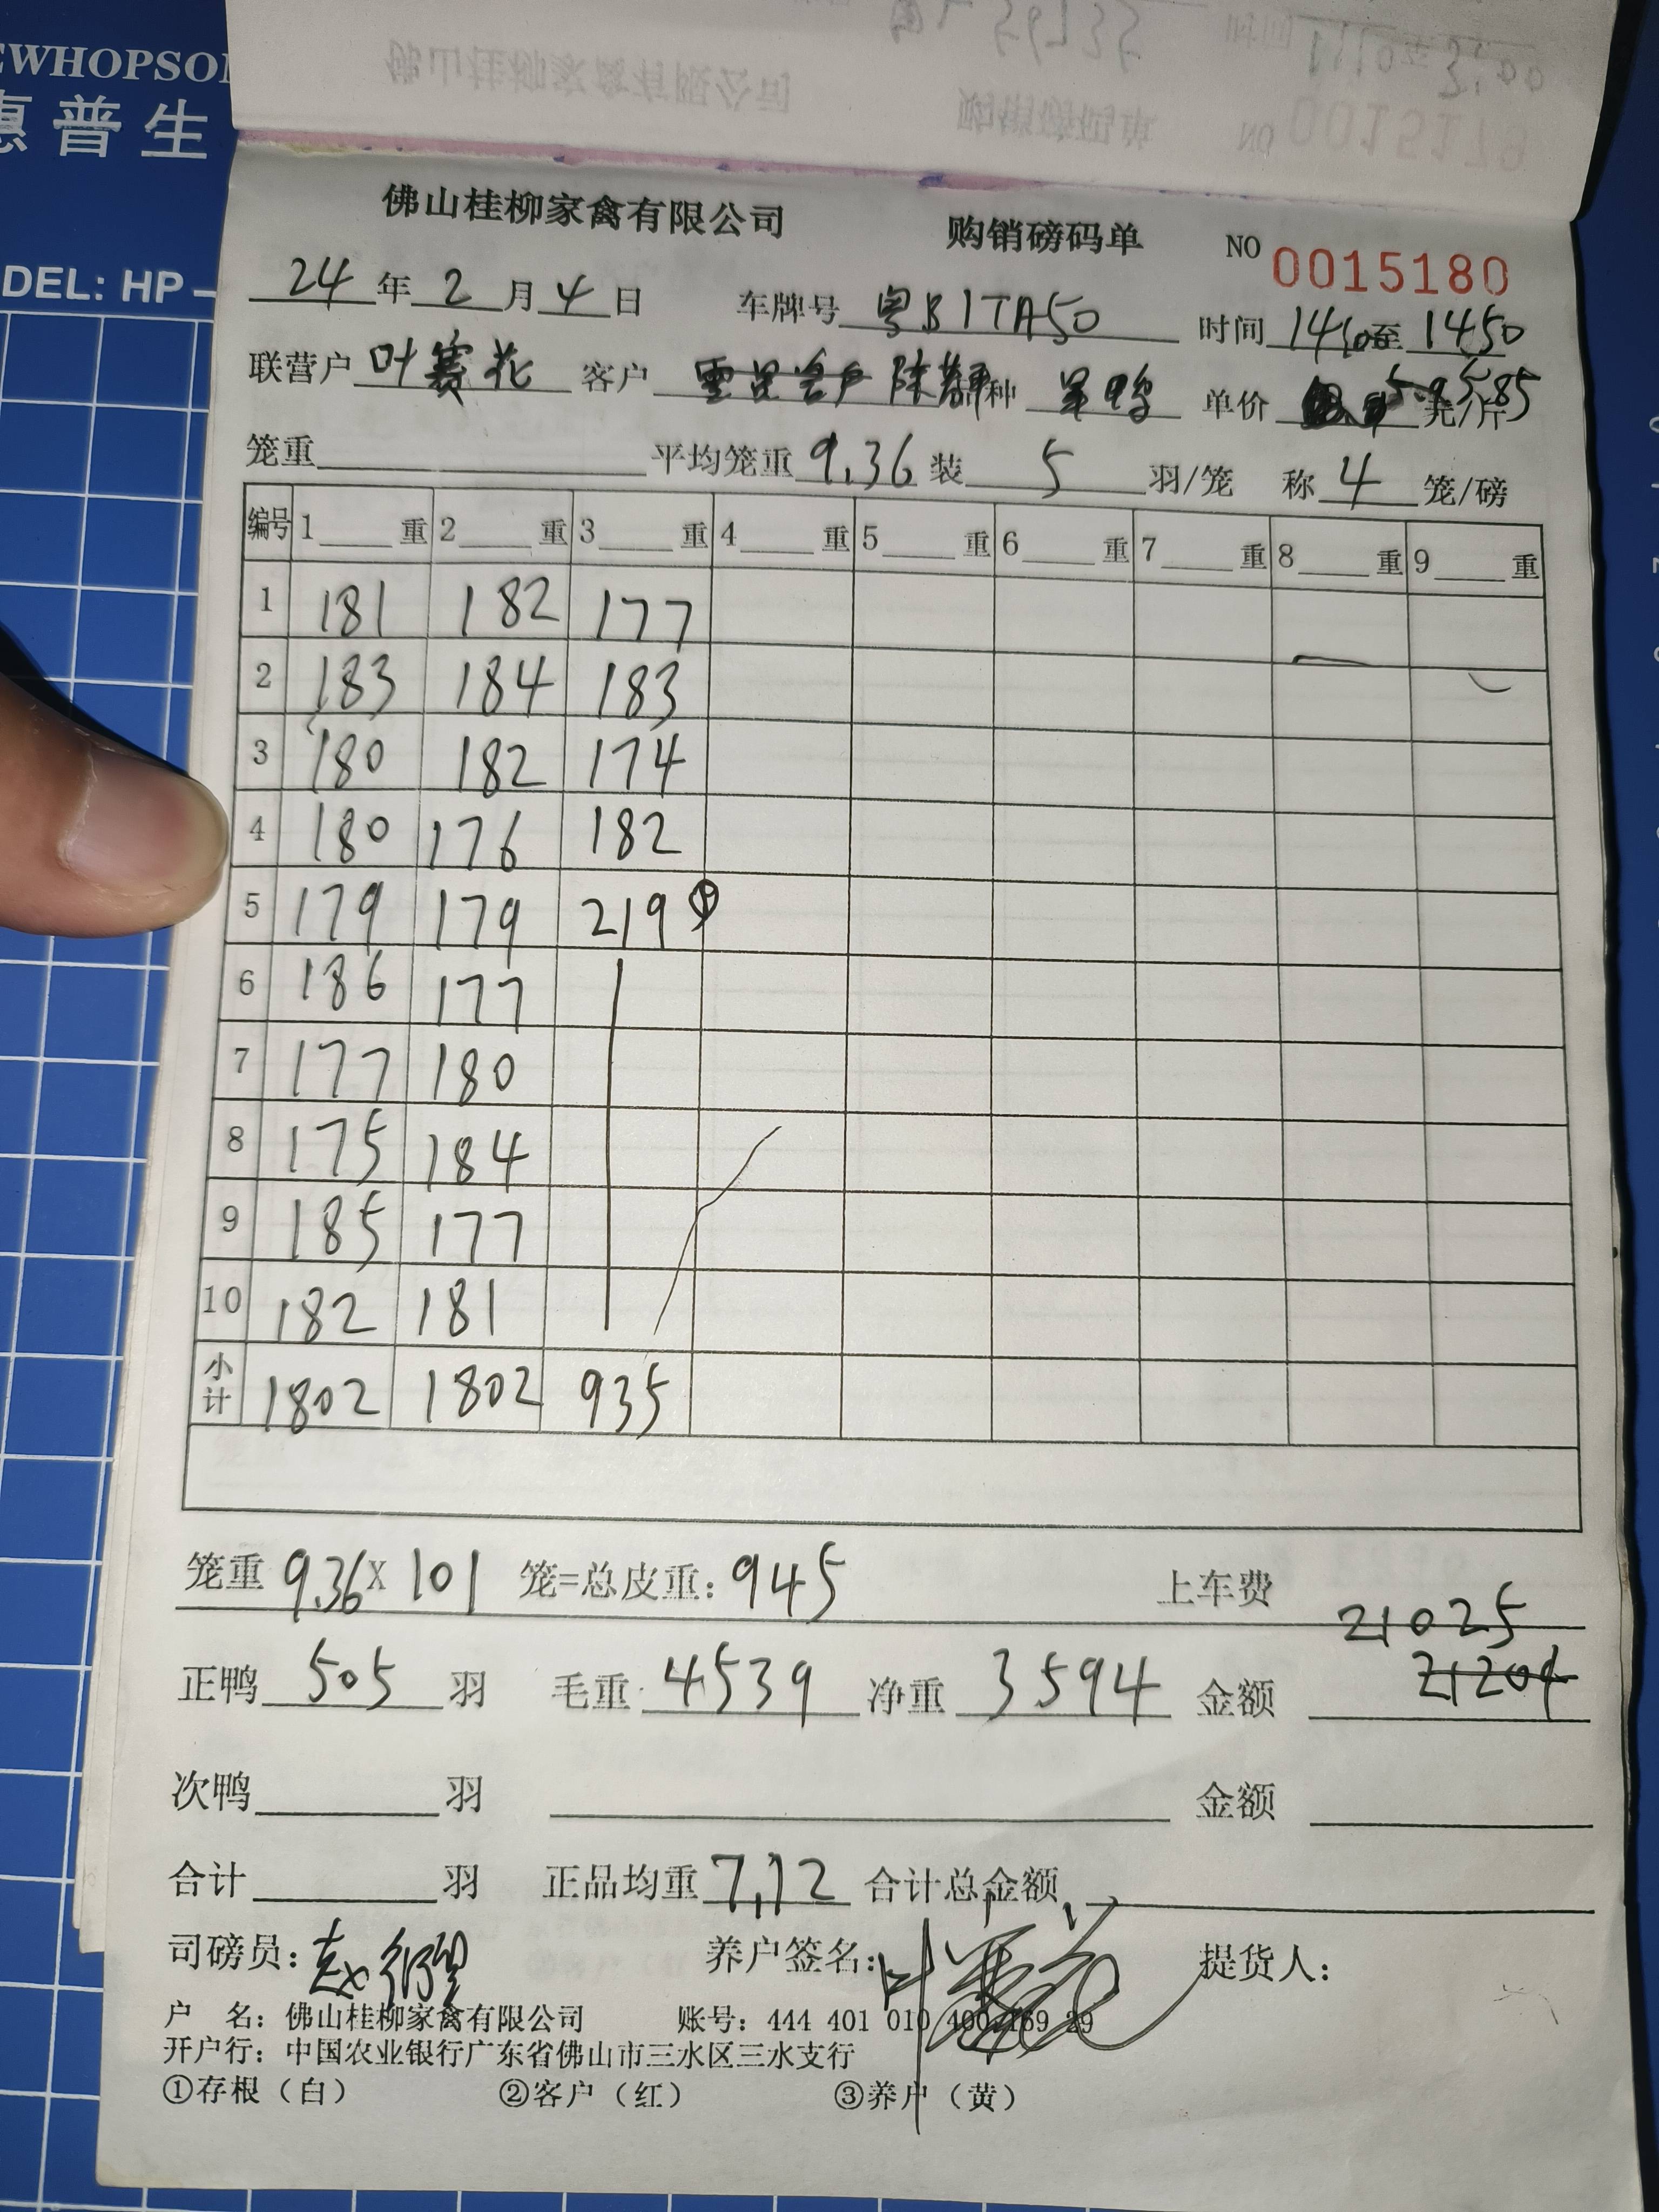 EWHOPSON
惠普生
DEL: HP-
佛山桂柳家禽有限公司 购销磅码单 NO 0015180
24年2月4日 车牌号 粤B1TA50 时间 1410至1450
联营户 叶赛花 客户 种 单价 5.85 元/斤
笼重 平均笼重 9.36 装 5 羽/笼 称 4 笼/磅
编号 1 重 2 重 3 重 4 重 5 重 6 重 7 重 8 重 9 重
1 181 182 177
2 183 184 183
3 180 182 174
4 180 176 182
5 179 179 219
6 186 177
7 177 180
8 175 184
9 185 177
10 182 181
小计 1802 1802 935
笼重 9.36 X 101 笼=总皮重: 945 上车费
21025
正鸭 505 羽 毛重 4539 净重 3594 金额 21204
次鸭 羽 金额
合计 羽 正品均重 7.12 合计总金额
司磅员: 养户签名: 叶赛花 提货人:
户 名: 佛山桂柳家禽有限公司 账号: 444 401 010 400 169 29
开户行: 中国农业银行广东省佛山市三水区三水支行
①存根（白） ②客户（红） ③养户（黄）